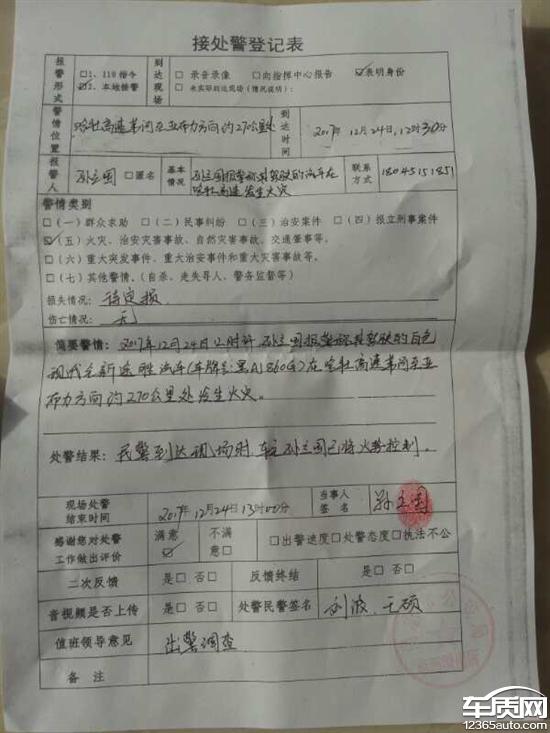 接处警登记表
报警形式 □1、110指令 ☑2、本地接警 到达现场 □ 录音录像 □向指挥中心报告 ☑表明身份
□ 未实际到达现场(情况说明):
警情位置 哈牡高速苇河至亚布力方向约270公里处 到达时间 2017年12月24日,12时30分
报警人 孙立国 □匿名 基本情况 孙立国报警称其驾驶的汽车在哈牡高速发生火灾 联系方式 18045151851
警情类别
□(一)群众求助 □(二)民事纠纷 □(三)治安案件 □(四)报立刑事案件
☑(五)火灾、治安灾害事故、自然灾害事故、交通肇事等。
□(六)重大突发事件、重大治安事件和重大灾害事故等。
□(七)其他警情。(自杀、走失寻人、警务监督等)
损失情况: 待定损
伤亡情况: 无
简要警情: 2017年12月24日12时许 孙立国报警称其驾驶的白色
现代全新途胜汽车(车牌号:黑A1860G)在哈牡高速苇河至亚
布力方向约270公里处发生火灾。
处警结果: 民警到达现场时,车主孙立国已将火势控制。
现场处警结束时间 2017年12月24日13时00分 当事人签名 孙立国
感谢您对处警工作做出评价 满意☑ 不满意□ □出警速度□处警态度□执法不公
二次反馈 是□ 否□ 反馈终结 是□ 否□
音视频是否上传 是□ 否□ 处警民警签名 刘波、王硕
值班领导意见 出警调查
备 注
车质网
12365auto.com